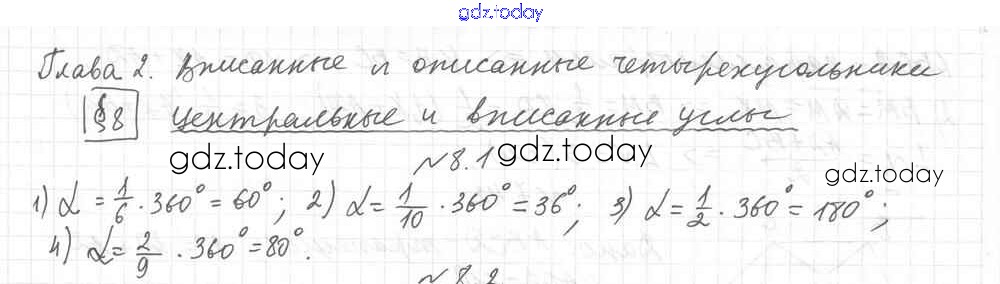 gdz.today
Глава 2. Вписанные и описанные четырехугольники
§8 Центральные и вписанные углы
gdz.today gdz.today
№8.1
gdz.today
1) α = 1/6 · 360° = 60°; 2) α = 1/10 · 360° = 36°; 3) α = 1/2 · 360° = 180°;
4) α = 2/9 · 360° = 80°.
№8.2